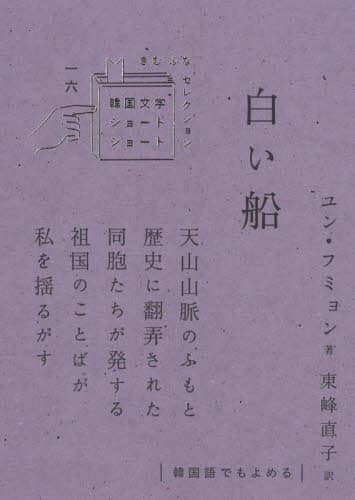 きむ ふな セレクション
一六
韓国文学
ショート
ショート
白い船
ユン・フミョン 著
東峰直子 訳
天山山脈のふもと
歴史に翻弄された
同胞たちが発する
祖国のことばが
私を揺るがす
韓国語でもよめる